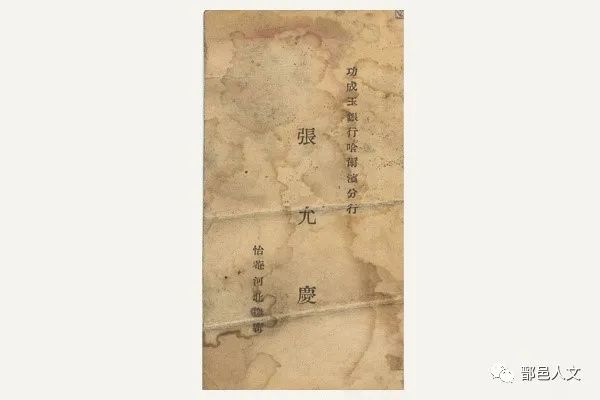 功成玉銀行哈爾濱分行
張允慶
怡菴河北撫寧
鄑邑人文